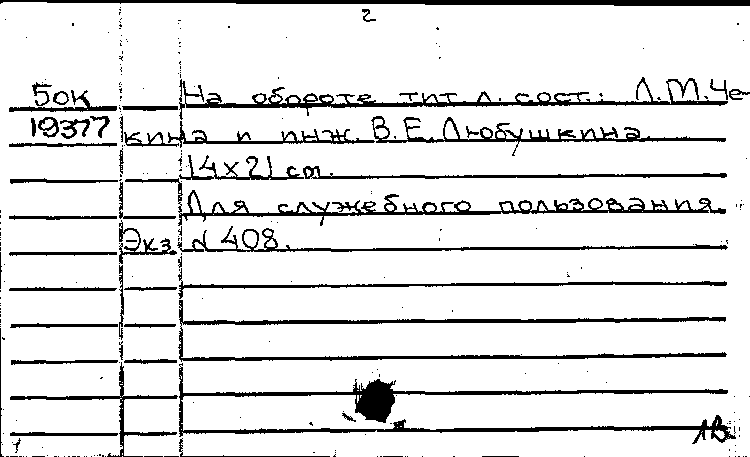 2
БОК На обороте тит. л. сост.: Л.М.Че-
19377 кина и инж. В.Е.Любушкина.
14x21 cm.
Для служебного пользования.
Экз. № 408.